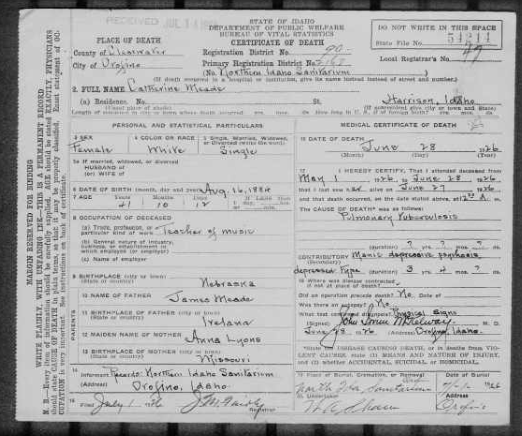 RECEIVED JUL 14
STATE OF IDAHO
DEPARTMENT OF PUBLIC WELFARE
BUREAU OF VITAL STATISTICS
CERTIFICATE OF DEATH
DO NOT WRITE IN THIS SPACE
State File No. 54214
Local Registrar's No. 49
PLACE OF DEATH
County of Clearwater
City of Orofino
Registration District No. 90
Primary Registration District No.
(No. Northern Idaho Sanitarium)
(If death occurred in a hospital or institution, give its name instead of street and number.)
2. FULL NAME Catherine Meade
(a) Residence. No. St. Harrison, Idaho
(Usual place of abode)
PERSONAL AND STATISTICAL PARTICULARS
3 SEX Female
4 COLOR OR RACE White
5 Single, Married, Widowed, or Divorced Single
5a If married, widowed, or divorced
HUSBAND of
(or) WIFE of
6 DATE OF BIRTH (month, day and year) Aug. 16, 1884
7 AGE Years 41 Months 10 Days 12
8 OCCUPATION OF DECEASED
(a) Trade, profession, or particular kind of work Teacher of music
(b) General nature of industry, business, or establishment in which employed (or employer)
(c) Name of employer
9 BIRTHPLACE (city or town) Nebraska
(State or country)
PARENTS
10 NAME OF FATHER James Meade
11 BIRTHPLACE OF FATHER Ireland
12 MAIDEN NAME OF MOTHER Anna Lyons
13 BIRTHPLACE OF MOTHER Missouri
14 Informant Records Northern Idaho Sanitarium
Orofino, Idaho
15 Filed July 1
Registrar
MEDICAL CERTIFICATE OF DEATH
16 DATE OF DEATH June 28 1926
17 I HEREBY CERTIFY, That I attended deceased from
May 1 1926, to June 28 1926
that I last saw her alive on June 27 1926
and that death occurred, on the date stated above, at
The CAUSE OF DEATH was as follows:
Pulmonary Tuberculosis
(duration) ? yrs. ? mos. ? ds.
CONTRIBUTORY Manic depressive psychosis
(Secondary)
depressed type (duration) 3 yrs. 4 mos. ? ds.
18 Where was disease contracted, if not at place of death?
Did an operation precede death? No Date of
Was there an autopsy? No
What test confirmed diagnosis? Physical signs
(Signed)
June 28, 1926 (Address) Orofino, Idaho.
State the DISEASE CAUSING DEATH, or in deaths from VIOLENT CAUSES, state (1) MEANS AND NATURE OF INJURY, and (2) whether ACCIDENTAL, SUICIDAL, or HOMICIDAL.
19 Place of Burial, Cremation, or Removal
Date of Burial
North Ida Sanitarium
20 Undertaker
Address
Orofino
MARGIN RESERVED FOR BINDING
WRITE PLAINLY, WITH UNFADING INK—THIS IS A PERMANENT RECORD
N. B.—Every item of information should be carefully supplied. AGE should be stated EXACTLY. PHYSICIANS should state CAUSE OF DEATH in plain terms, so that it may be properly classified. Exact statement of OCCUPATION is very important. See instructions on back of certificate.